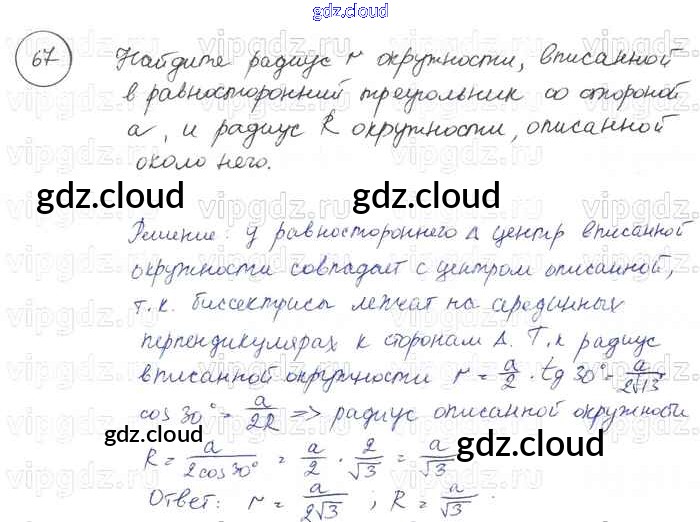 gdz.cloud
67
Найдите радиус r окружности, вписанной
в равносторонний треугольник со стороной
a, и радиус R окружности, описанной
около него.
gdz.cloud
gdz.cloud
Решение: у равностороннего Δ центр вписанной
окружности совпадает с центром описанной,
т.к. биссектрисы лежат на серединных
перпендикулярах к сторонам Δ. Т.к радиус
вписанной окружности r = a/2 · tg 30° = a/2√3
cos 30° = a/2R => радиус описанной окружности
gdz.cloud
gdz.cloud
R = a/2cos30° = a/2 · 2/√3 = a/√3
Ответ: r = a/2√3 ; R = a/√3.